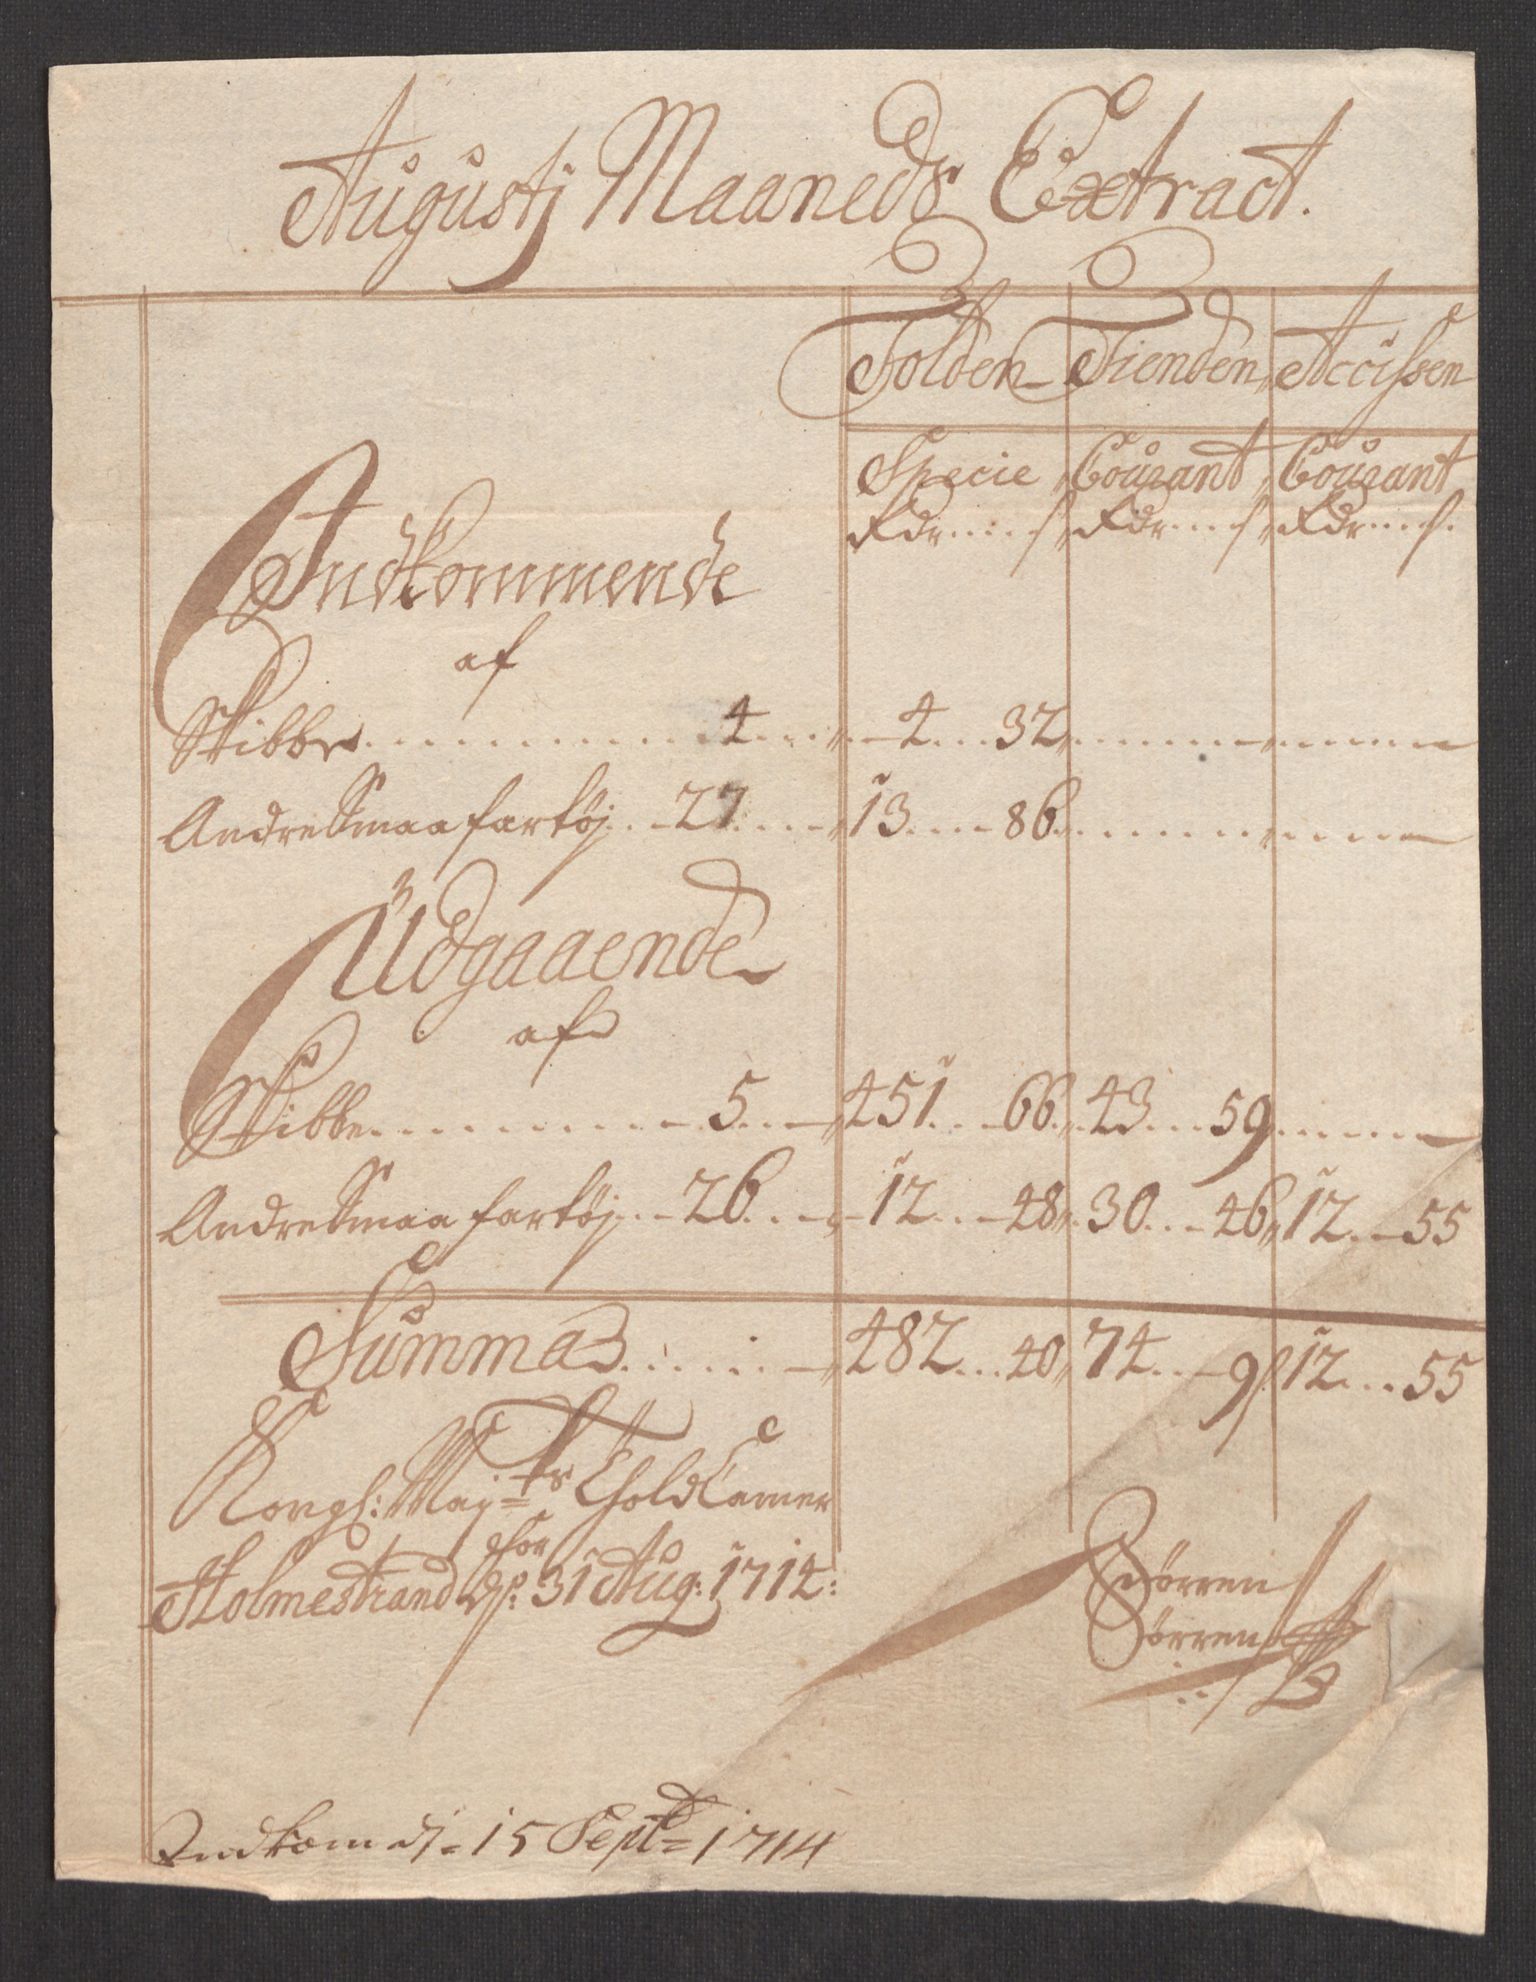 Augustj Maaneds Extract.
Tolden Tienden Accissen
Specie Courant Courant
Rdr....s Rdr....s Rdr....s.
Indkommende
af
Skibbe 4 4 32
Andre Smaa fartøj 27 13 86
Udgaaende
af
Skibbe 5 451 66 43 59
Andre Smaa fartøj 26 12 48 30 46 12 55
Summa 482 40 74 9 12 55
Kongl: Maj=ts Thold Camer
for
Holmestrand dß: 31 Aug: 1714:
Sørren
Sørren
Indkom d. 15 Sept= 1714